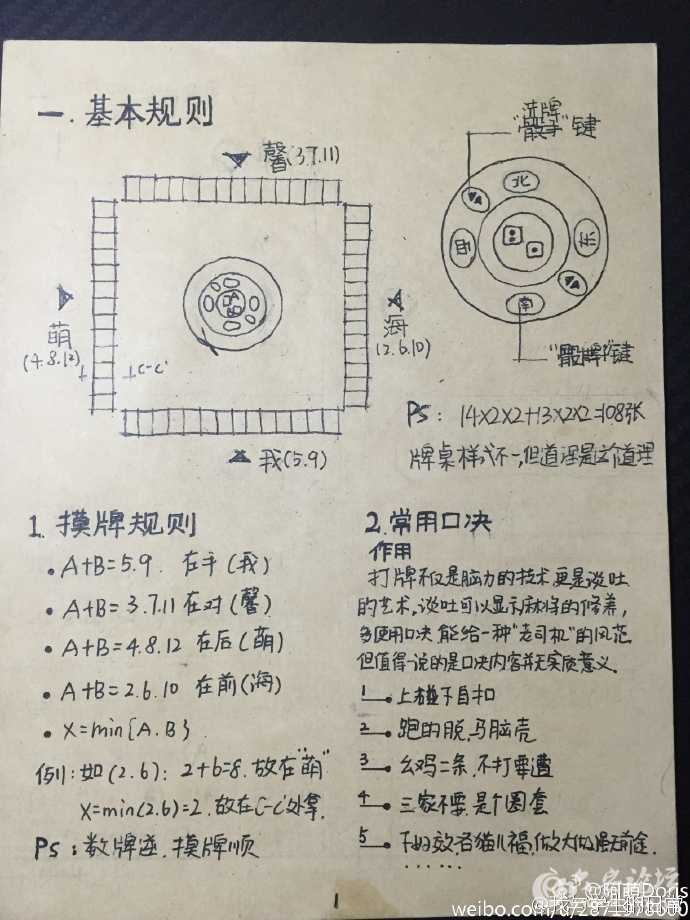 一.基本规则
馨(3.7.11)
萌
(4.8.12)
C-C'
海
(2.6.10)
我(5.9)
洗牌
"骰子"键
北
西
东
南
"骰牌"键
PS: 14×2×2+13×2×2=108张
牌桌样式不一,但道理是这个道理
1. 摸牌规则
• A+B=5.9. 在手(我)
• A+B=3.7.11在对(馨)
• A+B=4.8.12 在后(萌)
• A+B=2.6.10 在前(海)
• X=min{A.B}
例1:如(2.6): 2+6=8.放在"萌"
X=min(2.6)=2.放在C-C'处拿.
PS:数牌逆.摸牌顺
2.常用口决
作用
打牌不仅是脑力的技术,更是谈吐
的艺术,谈吐可以显示麻将的修养,
多使用口决 能给一种"老司机"的风范
但值得一说的是口决内容并无实质意义.
1 上碰下自扣
2 跑的脱,马脑壳
3 幺鸡二条.不打要遭
4 三家不要.是个圈套
5 猫儿福,做大做强无前途.
……
1
weibo.com/